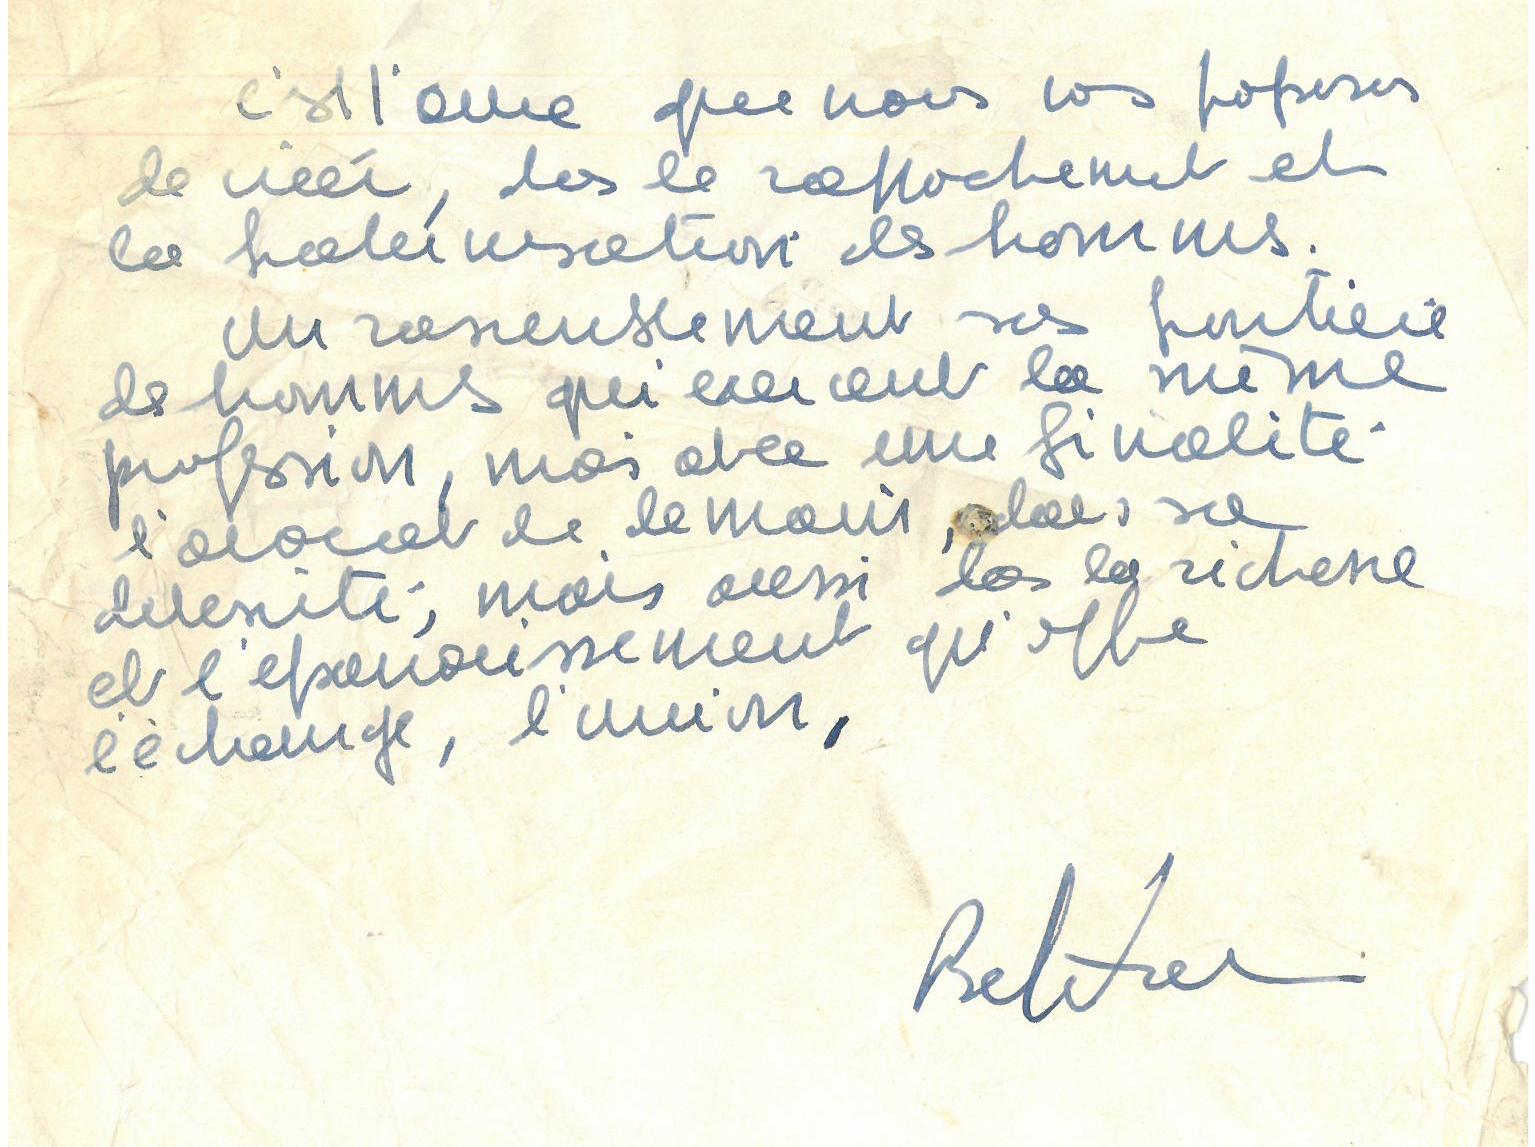 c'est l'œuvre que nous vous proposons
de créer, dans le rapprochement et
la fraternisation des hommes.
Un rassemblement sans frontière
de hommes qui exercent la même
profession, mais avec une finalité
l'avocat de demain, dans sa
diversité; mais aussi dans la richesse
et l'épanouissement qu'offre
l'échange, l'union,